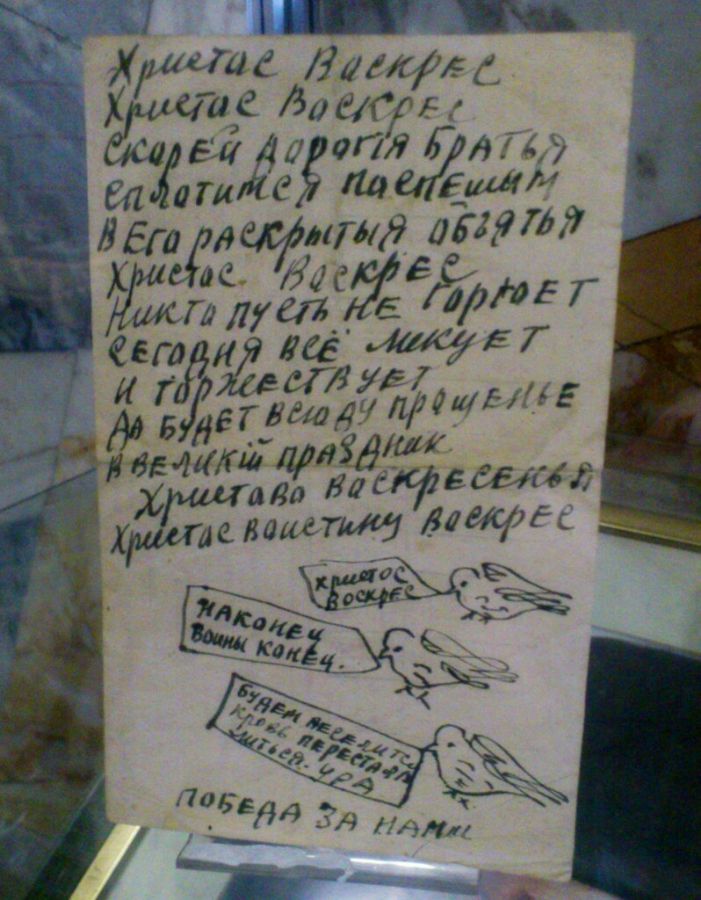 Христас Васкрес
Христас Васкрес
Скарей дарагія братья
сплотимся паспешым
в Его раскрытыя объятья
Христас Васкрес
Никта пусть не гарюет
Сегодня всё ликует
и таржествует
Да будет всюду пращенье
в великій праздник
Христава васкресенья
Христас ваистину васкрес
Христос
Воскрес
наконец
воины конец.
Будем веселитс
кровь переста
литься. ура
победа за нами